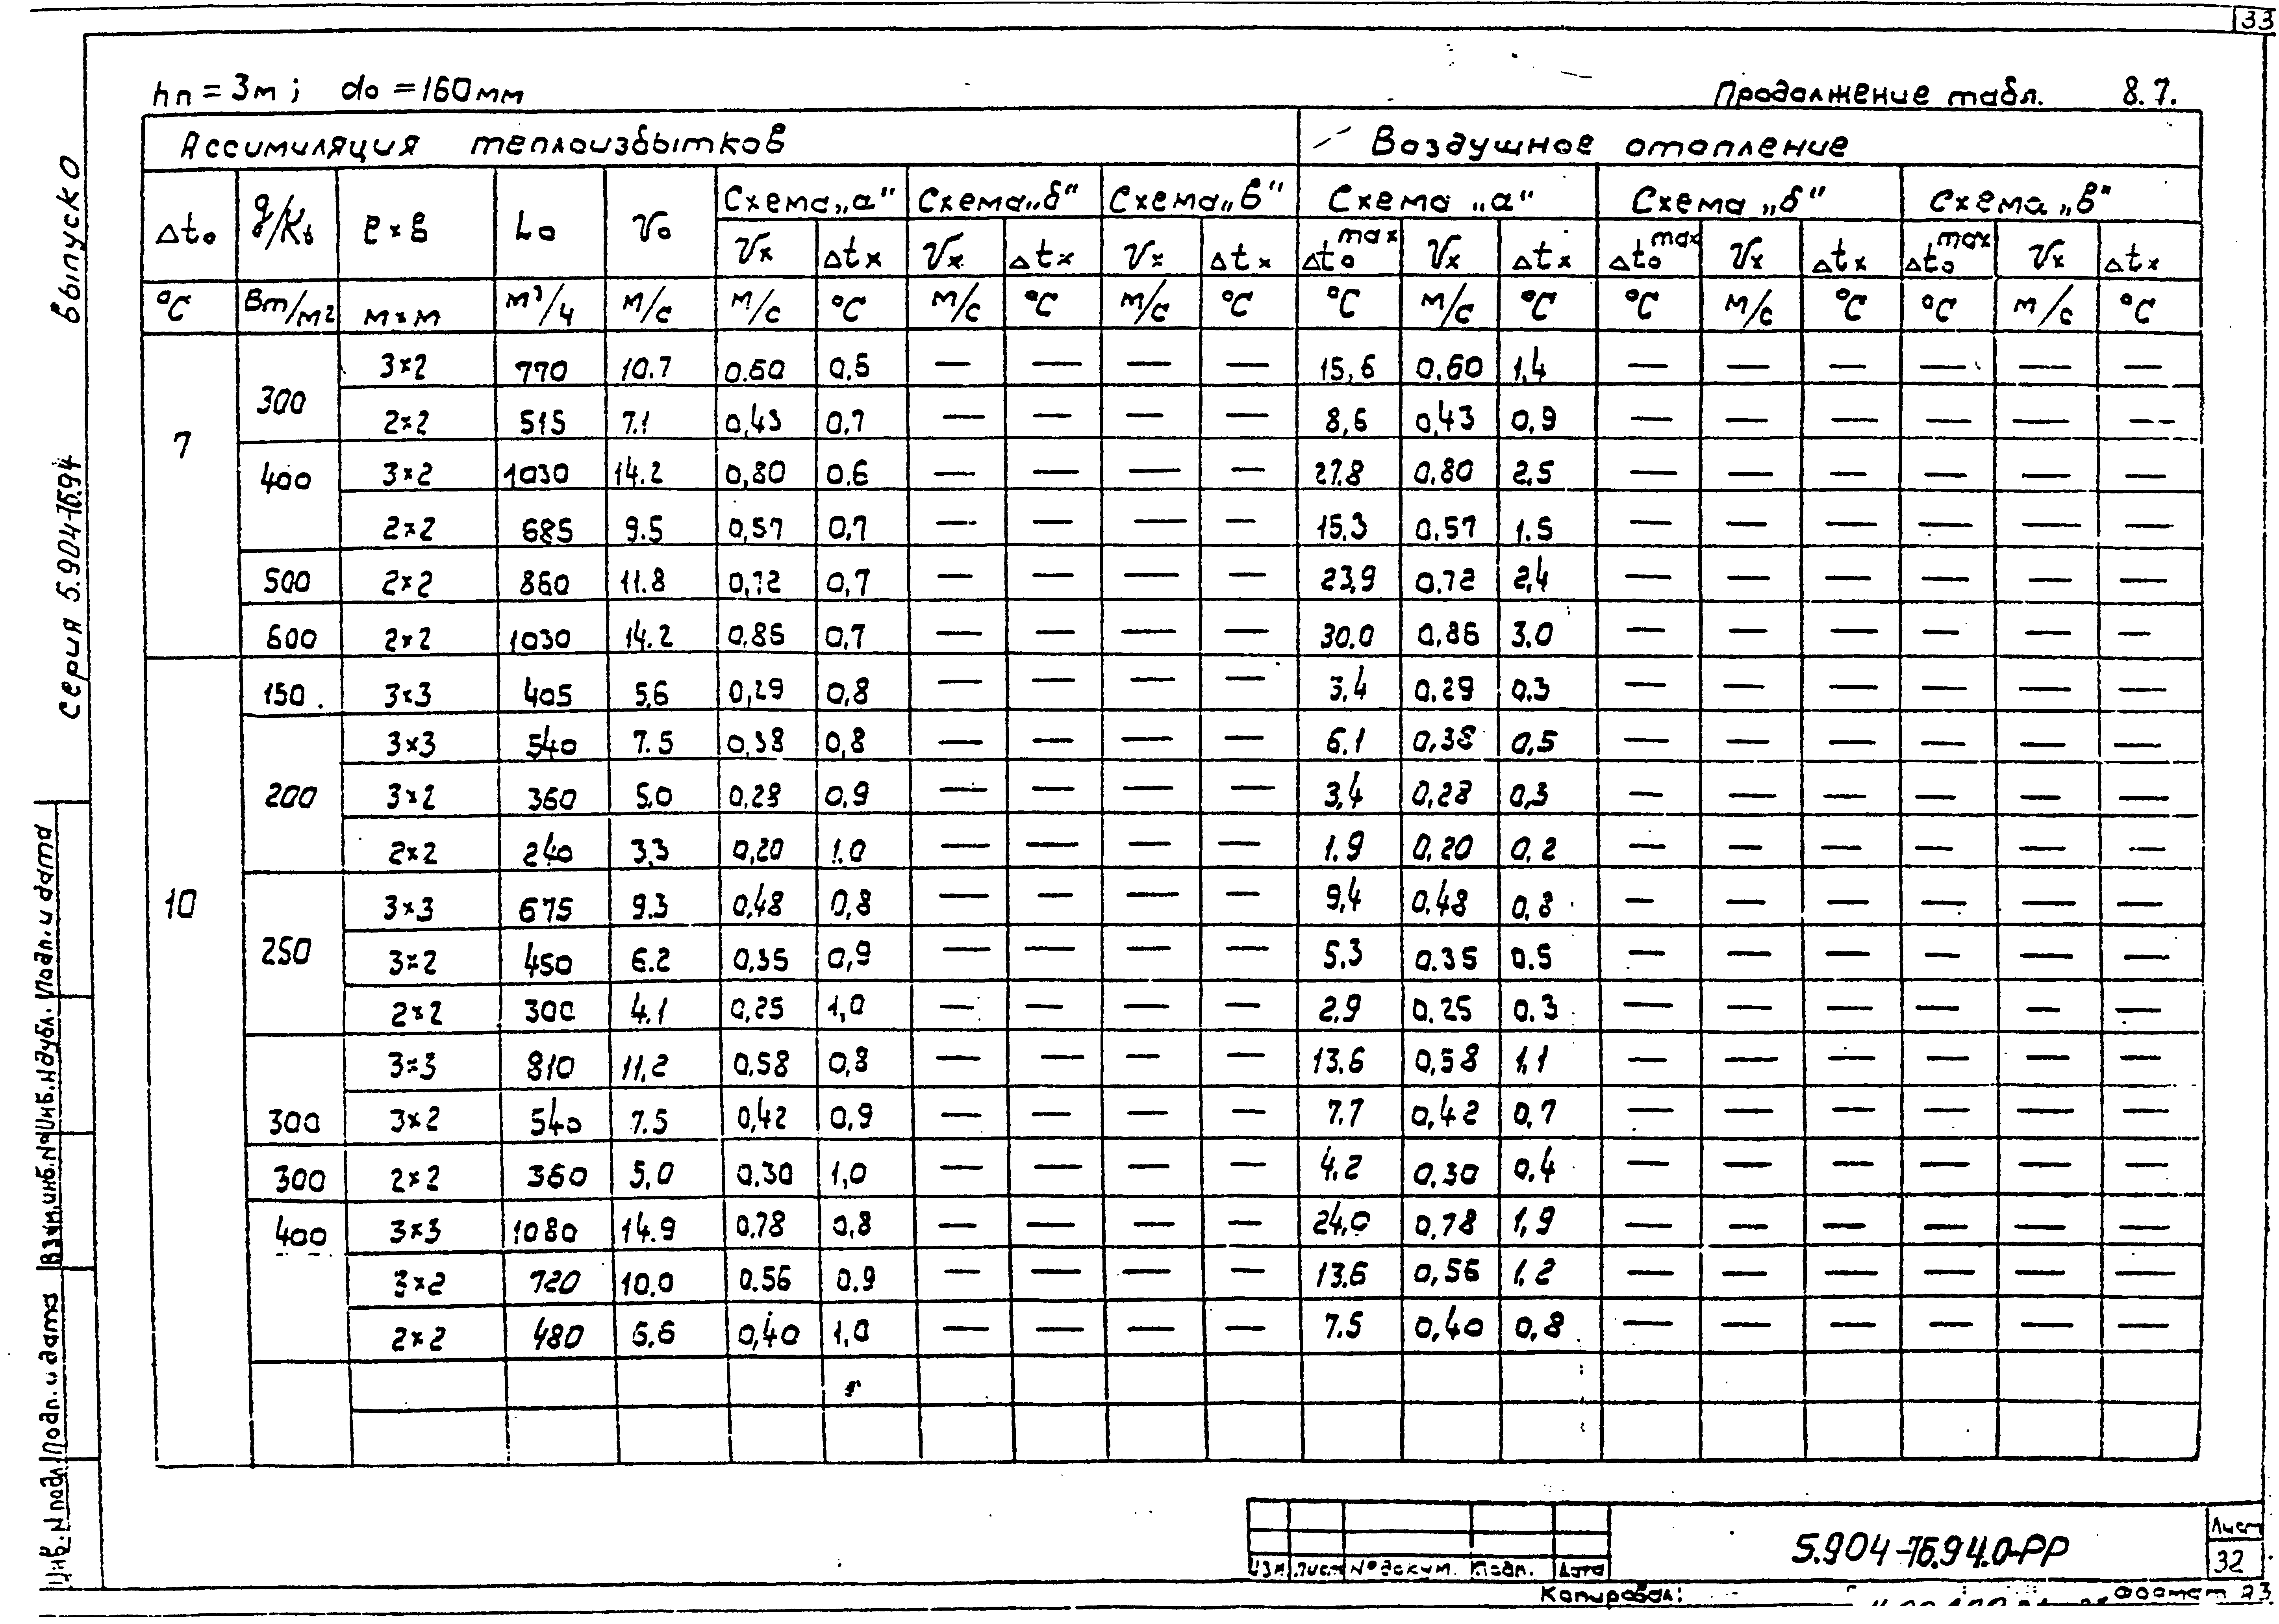 33
hп = 3м; do = 160мм Продолжение табл. 8.7.
Ассимиляция теплоизбытков Воздушное отопление
Δto q/Kв ℓ×в Lo Vo Схема „а" Схема „б" Схема „в" Схема „а" Схема „б" Схема „в"
Vx Δtx Vx Δtx Vx Δtx Δto max Vx Δtx Δto max Vx Δtx Δto max Vx Δtx
°C Вт/м2 м×м м³/ч м/с м/с °C м/с °C м/с °C °C м/с °C °C м/с °C °C м/с °C
7 300 3×2 770 10.7 0.60 0.6 — — — — 15,6 0.60 1,4 — — — — — —
2×2 515 7.1 0,43 0.7 — — — — 8,6 0,43 0,9 — — — — — —
400 3×2 1030 14.2 0,80 0.6 — — — — 27.8 0.80 2,5 — — — — — —
2×2 685 9.5 0,57 0,7 — — — — 15.3 0.57 1.5 — — — — — —
500 2×2 860 11.8 0,72 0,7 — — — — 23,9 0.72 2,4 — — — — — —
600 2×2 1030 14.2 0,86 0,7 — — — — 30.0 0,86 3.0 — — — — — —
10 150 3×3 405 5,6 0,29 0,8 — — — — 3,4 0.29 0.3 — — — — — —
200 3×3 540 7.5 0,38 0,8 — — — — 6.1 0,38 0,5 — — — — — —
3×2 360 5.0 0,28 0,9 — — — — 3,4 0,28 0,3 — — — — — —
2×2 240 3,3 0,20 1.0 — — — — 1.9 0,20 0,2 — — — — — —
250 3×3 675 9.3 0,48 0,8 — — — — 9,4 0.48 0,8 — — — — — —
3×2 450 6.2 0,35 0,9 — — — — 5.3 0.35 0.5 — — — — — —
2×2 300 4.1 0,25 1,0 — — — — 2.9 0.25 0.3 — — — — — —
3×3 810 11,2 0,58 0,8 — — — — 13.6 0,58 1,1 — — — — — —
300 3×2 540 7.5 0,42 0,9 — — — — 7.7 0,42 0,7 — — — — — —
300 2×2 360 5,0 0.30 1,0 — — — — 4.2 0,30 0,4 — — — — — —
400 3×3 1080 14.9 0,78 0,8 — — — — 24,0 0,78 1,9 — — — — — —
3×2 720 10.0 0.56 0.9 — — — — 13.6 0,56 1,2 — — — — — —
2×2 480 6.6 0,40 1,0 — — — — 7.5 0,40 0,8 — — — — — —
Серия 5.904-75.94 выпуск 0
Инв. N подл. Подп. и дата Взам. инв. N Инв. N дубл. Подп. и дата
Изм. Лист N° докум. Подп. Дата
5.904-75.94.0-РР
Лист
32
Копировал: формат А3